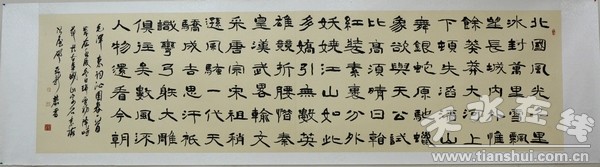 北國風光千里
冰封萬里雪飄
望長城內外惟
餘莽莽大河上
下頓失滔滔山
舞銀蛇原馳蠟
象欲與天公試
比高須晴日看
紅裝素裹分外
妖嬈江山如此
多嬌引無數英
雄競折腰惜秦
皇漢武略輸文
采唐宗宋祖稍
遜風騷一代天
驕成吉思汗只
識彎弓射大雕
俱往矣數風流
人物還看今朝
毛澤東詞沁園春雪
天水在线
www.tianshui.com.cn